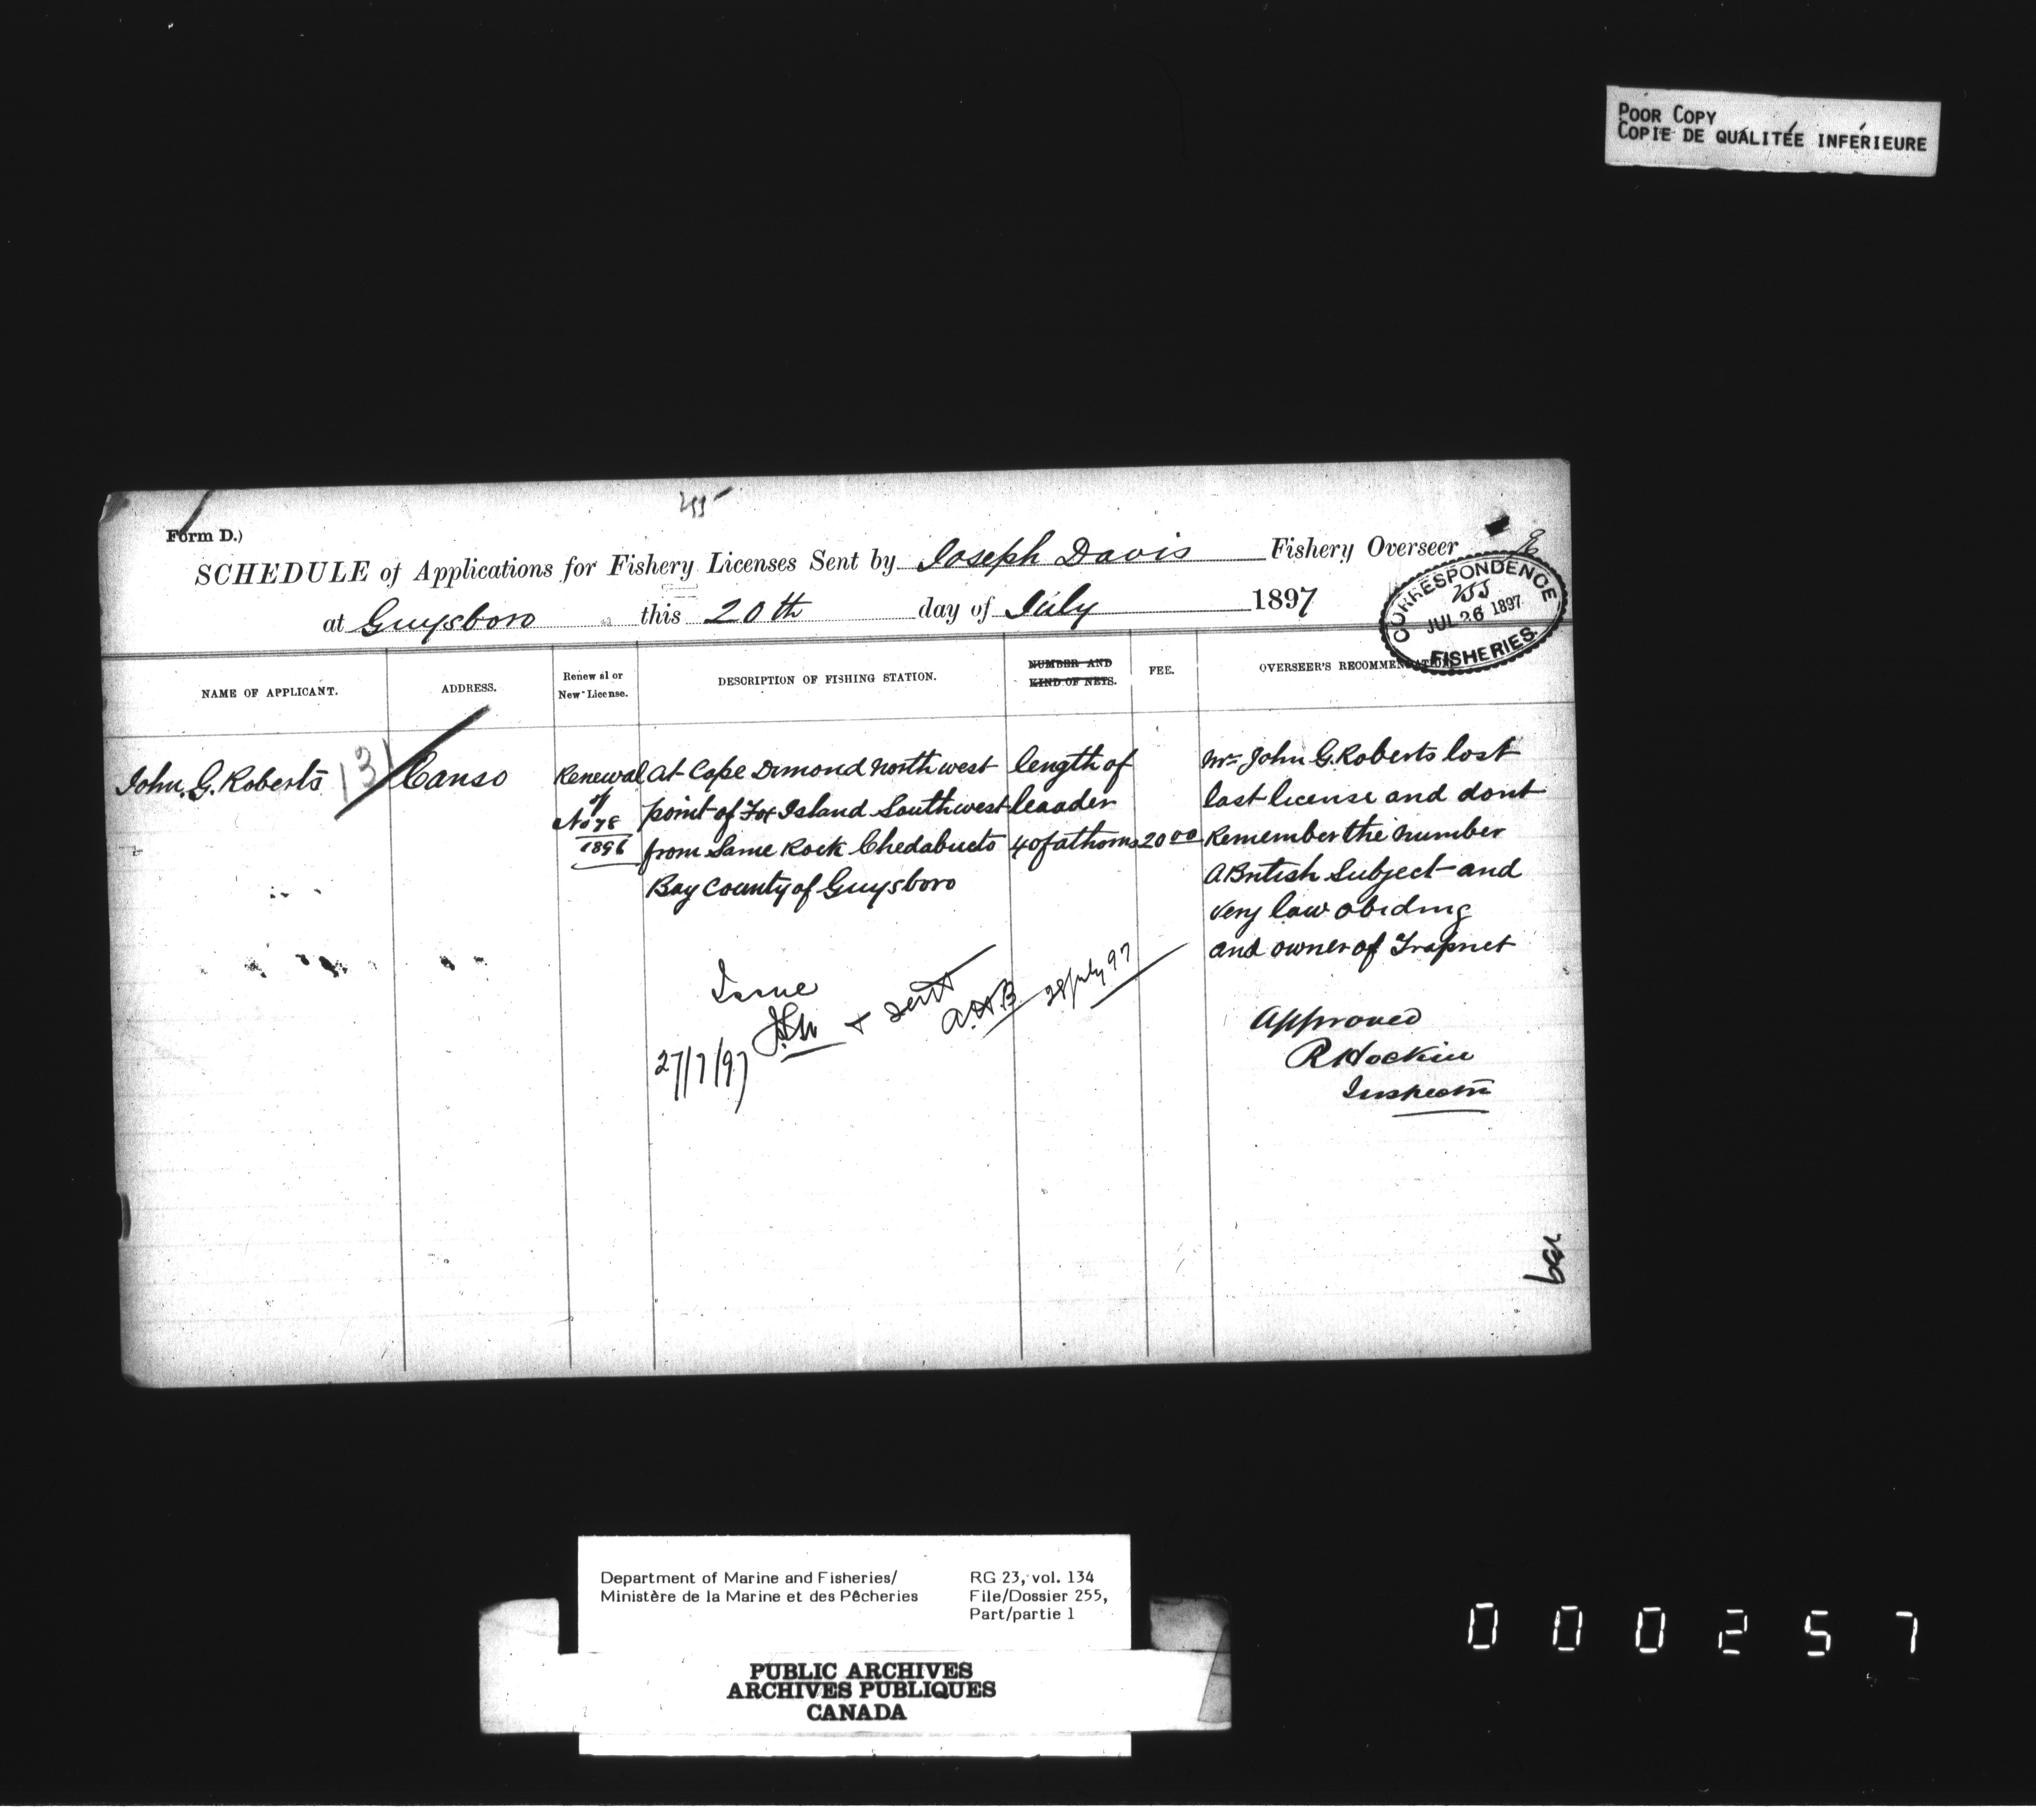 POOR COPY
COPIE DE QUALITÉE INFÉRIEURE
255
Form D.)
SCHEDULE of Applications for Fishery Licenses Sent by Joseph Davis Fishery Overseer
at Guysboro this 20th day of July 1897
CORRESPONDENCE
255
JUL 26 1897
FISHERIES.
NAME OF APPLICANT.
ADDRESS.
Renewal or
New License.
DESCRIPTION OF FISHING STATION.
NUMBER AND
KIND OF NETS.
FEE.
OVERSEER'S RECOMMENDATION
John. G. Roberts
131
Canso
Renewal
of
No 78
1896
at Cape Dimond North west
point of Fox Island Southwest
from Same Rock Chedabucto
Bay County of Guysboro
length of
leaader
40 fathoms
20 00
Mr John G. Roberts lost
last license and dont
Remember the Number
A British Subject and
very law abiding
and owner of Trapnet
Issue
& sent
A.H.B. 28 July 97
27/7/97
Approved
R Hockin
Inspector
Department of Marine and Fisheries/
Ministère de la Marine et des Pêcheries
RG 23, vol. 134
File/Dossier 255,
Part/partie 1
PUBLIC ARCHIVES
ARCHIVES PUBLIQUES
CANADA
000257